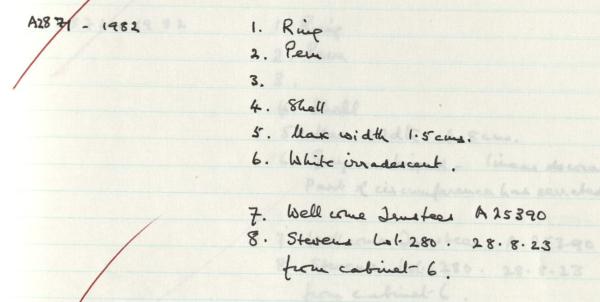 A2871 - 1982
1. Ring
2. Peru
3.
4. Shell
5. Max width 1.5cms.
6. White irradescent.
7. Wellcome Trustees A 25390
8. Stevens Lot. 280. 28.8.23
from cabinet 6.